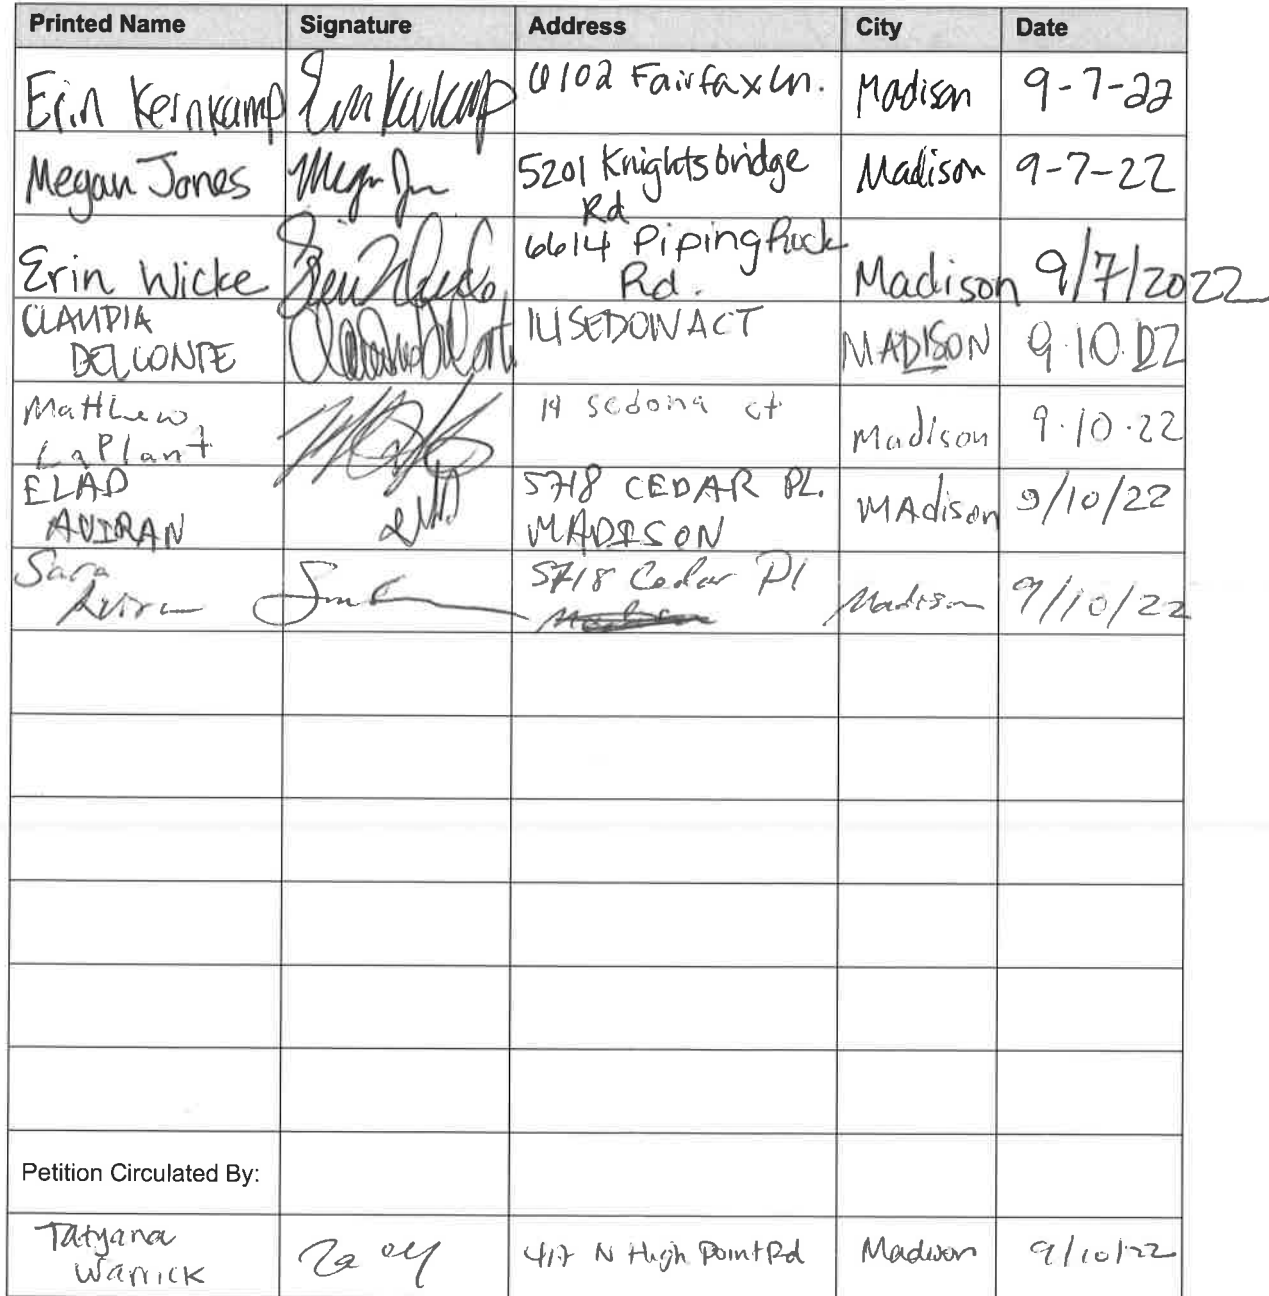 Printed Name Signature Address City Date
Erin Kernkamp 6102 Fairfax Ln. Madison 9-7-22
Megan Jones 5201 Knightsbridge Rd Madison 9-7-22
Erin Wicke 6614 Piping Rock Rd. Madison 9/7/2022
CLAUDIA DELCONTE 14 SEDONA CT MADISON 9.10.22
Matthew LaPlant 14 sedona ct Madison 9.10.22
ELAD AVIRAN 5718 CEDAR PL. MADISON MAdison 9/10/22
Sara Aviran 5718 Cedar Pl Madison 9/10/22
Petition Circulated By:
Tatyana Warrick 417 N High Point Rd Madison 9/10/22